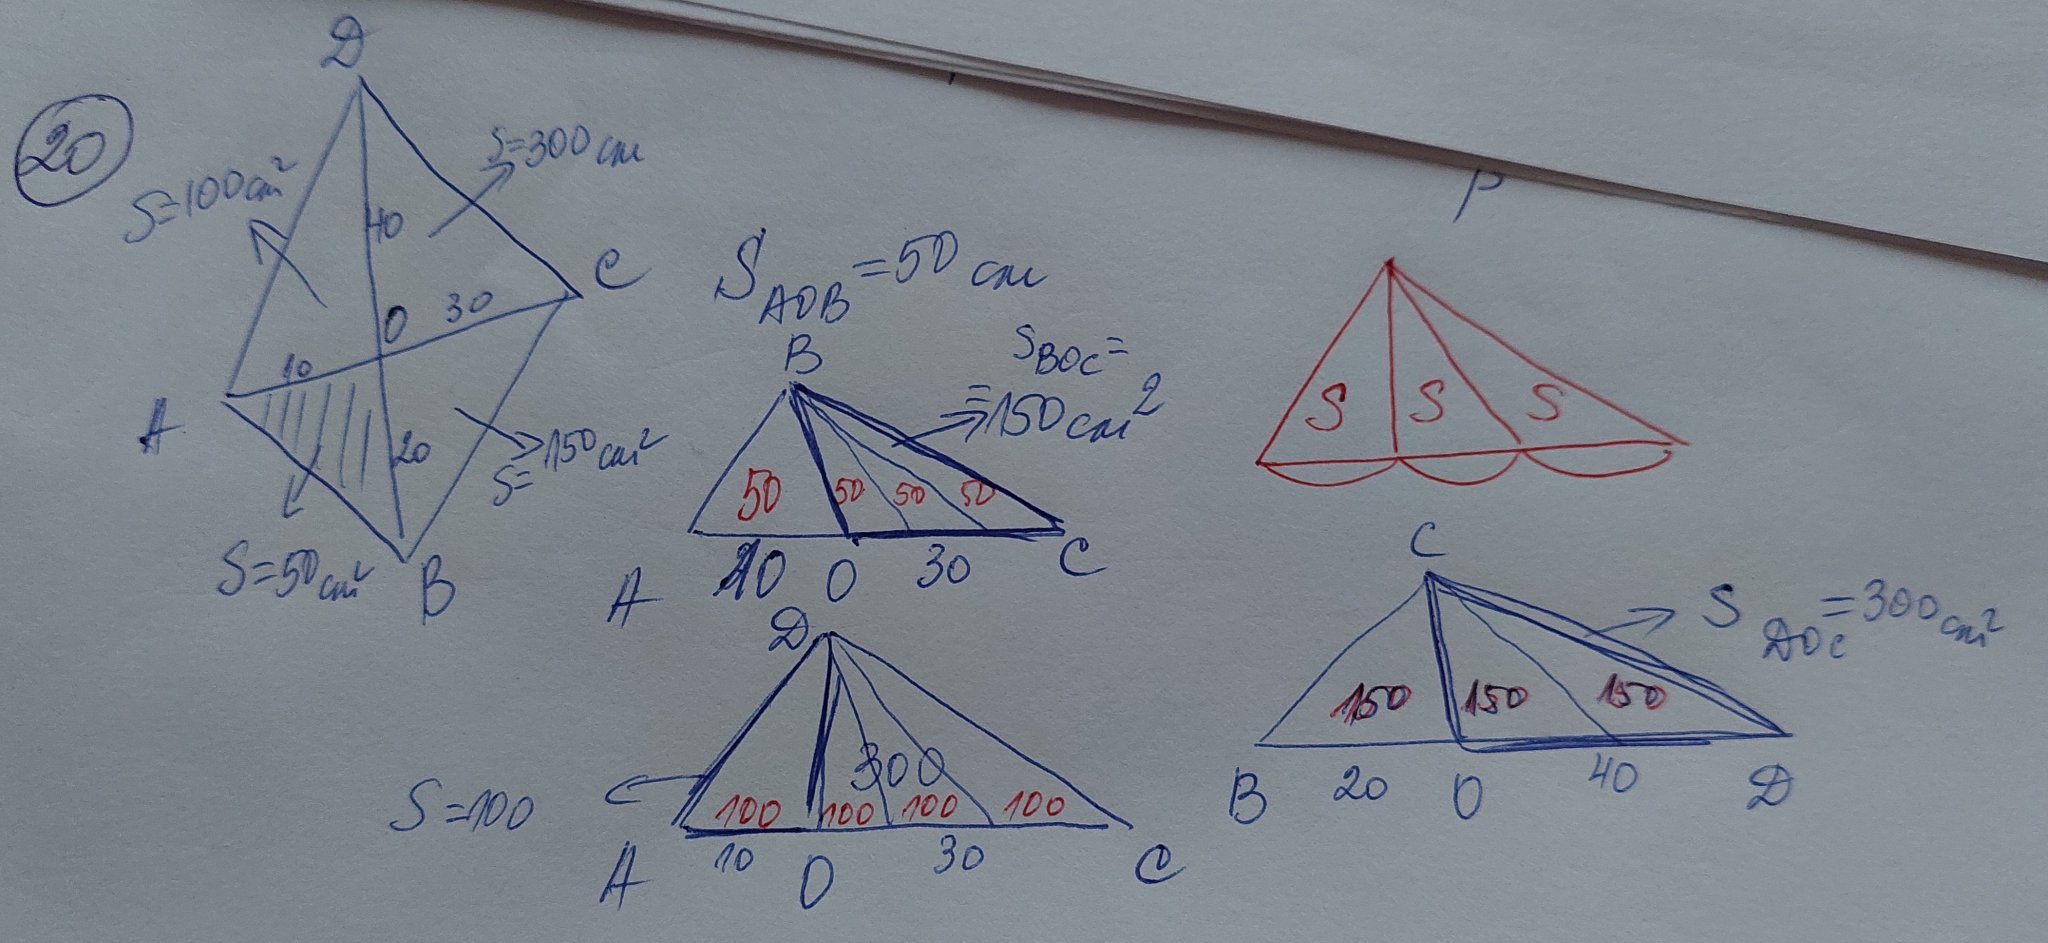 20
D
S=100cm²
S=300cm
40
C
O
30
10
A
20
S=150cm²
S=50cm²
B
S AOB =50 cm
B
S BOC =
=150cm²
50 50 50 50
A 10 O 30 C
D
300
100 100 100 100
S=100
A 10 O 30 C
P
S S S
C
S DOC =300cm²
150 150 150
B 20 O 40 D